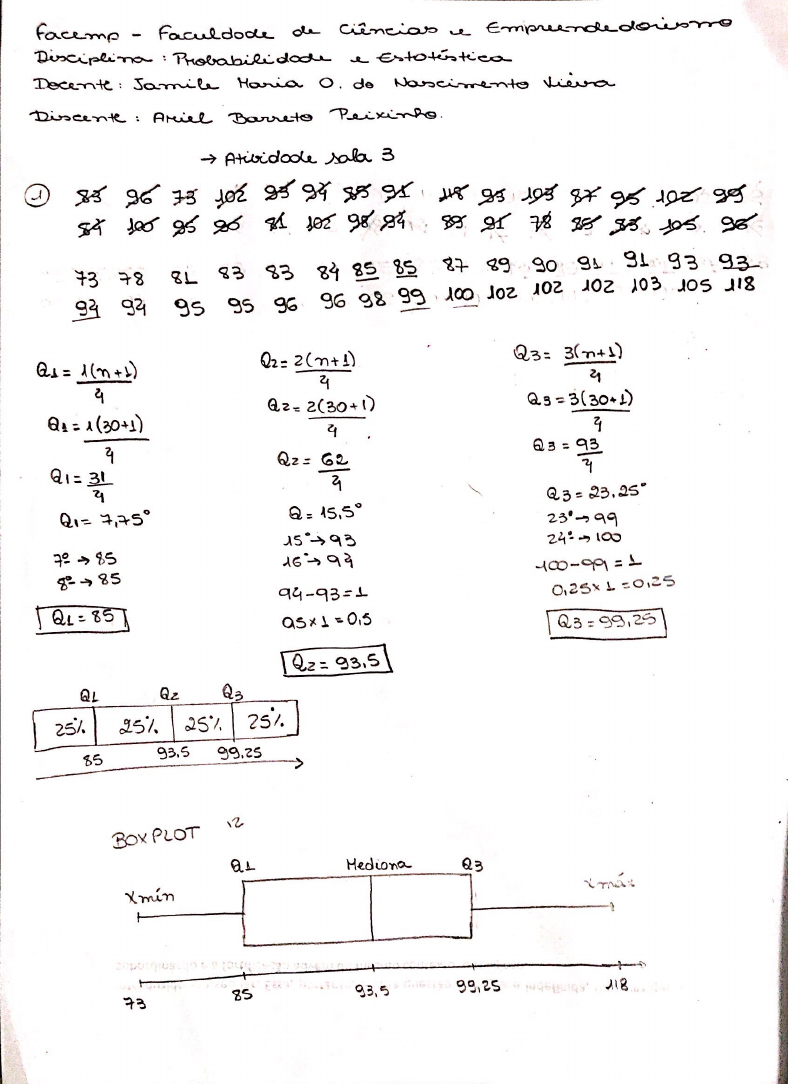 Facemp - Faculdade de Ciências e Empreendedorismo
Disciplina: Probabilidade e Estatística
Docente: Jamile Maria O. do Nascimento Vieira
Discente: Ariel Barreto Peixinho.
→ Atividade sala 3
1 83 96 73 102 93 94 85 91 118 93 103 87 95 102 99
84 100 95 90 81 102 98 94 89 91 78 85 83 105 96
73 78 81 83 83 84 85 85 87 89 90 91 91 93 93
94 94 95 95 96 96 98 99 100 102 102 102 103 105 118
Q1 = 1(n+1)/4 Q2 = 2(n+1)/4 Q3 = 3(n+1)/4
Q1 = 1(30+1)/4 Q2 = 2(30+1)/4 Q3 = 3(30+1)/4
Q1 = 31/4 Q2 = 62/4 Q3 = 93/4
Q1 = 7,75° Q = 15,5° Q3 = 23,25°
7º → 85 15° → 93 23° → 99
8º → 85 16° → 94 24º → 100
94-93=1 100-99=1
Q1 = 85 0,5×1=0,5 0,25×1=0,25
Q2 = 93,5 Q3 = 99,25
Q1 Q2 Q3
25% 25% 25% 25%
85 93,5 99,25
BOXPLOT
Q1 Mediana Q3
xmín xmáx
73 85 93,5 99,25 118